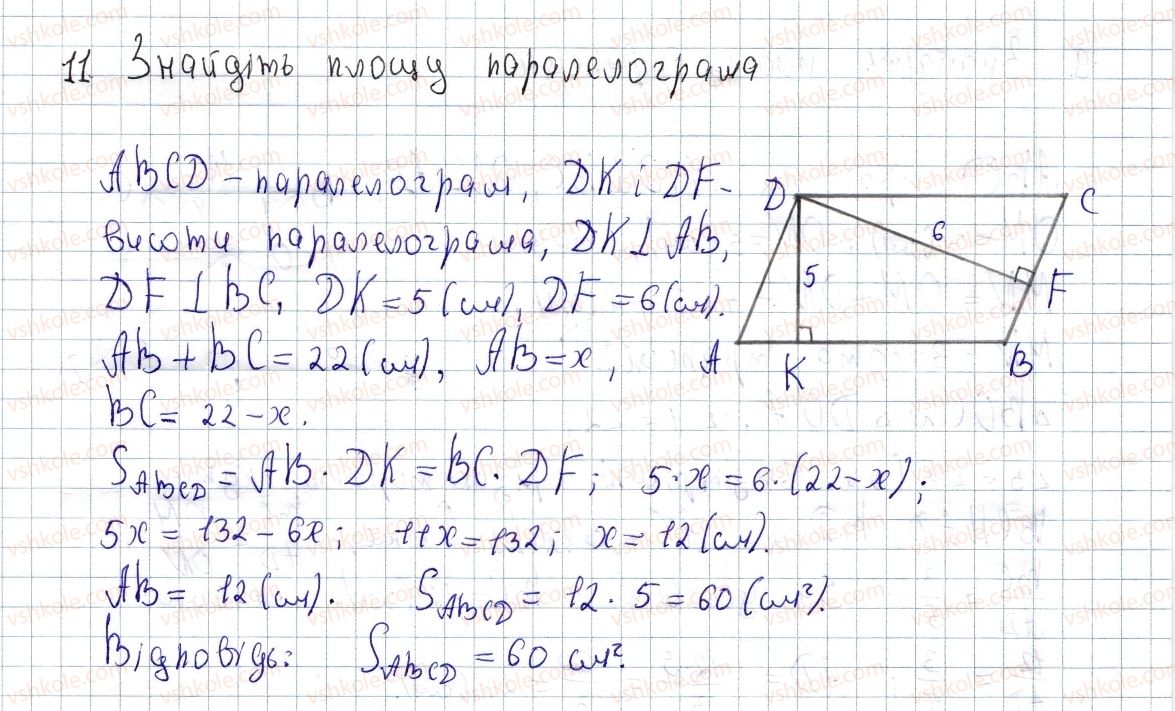 11. Знайдіть площу паралелограма
ABCD – паралелограм, DK і DF –
висоти паралелограма, DK⊥AB,
DF⊥BC, DK = 5 (см), DF = 6 (см).
AB + BC = 22 (см), AB = x,
BC = 22 – x.
S_ABCD = AB · DK = BC · DF; 5·x = 6·(22–x);
5x = 132 – 6x; 11x = 132; x = 12 (см).
AB = 12 (см). S_ABCD = 12 · 5 = 60 (см²).
Відповідь: S_ABCD = 60 см².
D C
6
5 F
A K B
vshkole.com